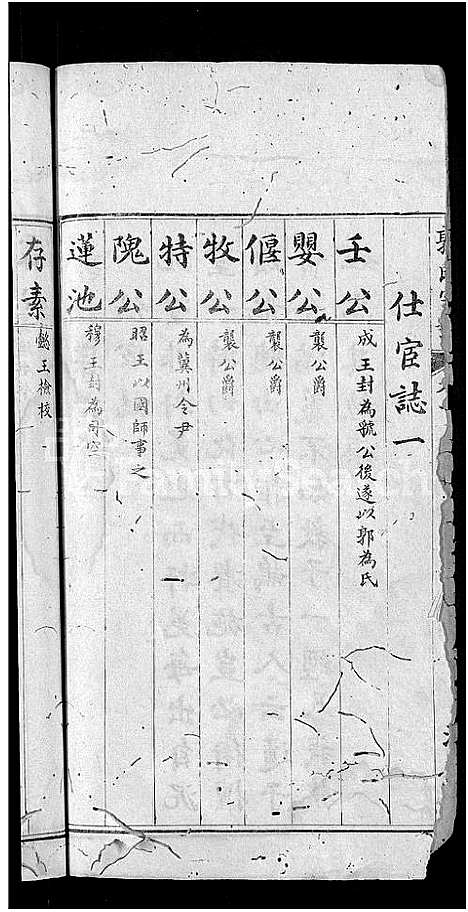 仕宦誌一
壬公 成王封為號公後遂以郭為氏
嬰公 襲公爵
偃公 襲公爵
牧公 襲公爵
特公 為冀州令尹
隗公 昭王以國師事之
蓮池 穆王封為司空
存素 懿王檢校